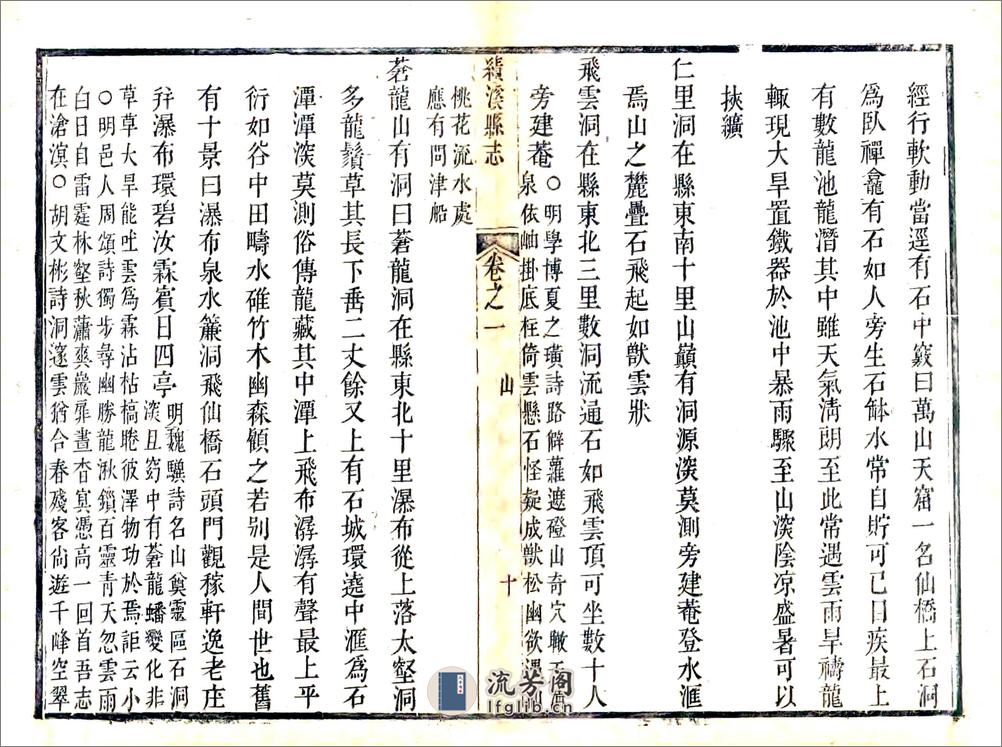 經行軟動當逕有石中竅曰萬山天窟一名仙橋上石洞
爲臥禪龕有石如人旁生石缽水常自貯可已目疾最上
有數龍池龍潛其中雖天氣清朗至此常遇雲雨旱禱龍
輙現大旱置鐵器於池中暴雨驟至山深陰凉盛暑可以
挾纊
仁里洞在縣東南十里山巔有洞源深莫測旁建菴登水滙
焉山之麓疊石飛起如獸雲狀
飛雲洞在縣東北三里數洞流通石如飛雲頂可坐數十人
旁建菴○明學博夏之璜詩路僻蘿遮磴山奇穴瞰
泉依岫掛底柱倚雲懸石怪疑成獸松幽欲遇
績溪縣志
卷之一
山
十
桃花流水處
應有問津船
蒼龍山有洞曰蒼龍洞在縣東北十里瀑布從上落太壑洞
多龍鬚草其長下垂二丈餘又上有石城環遶中滙爲石
潭潭深莫測俗傳龍藏其中潭上飛布潺潺有聲最上平
衍如谷中田疇水碓竹木幽森顧之若別是人間世也舊
有十景曰瀑布泉水簾洞飛仙橋石頭門觀稼軒逸老庄
幷瀑布環碧汝霖賓日四亭明魏驥詩名山奠靈區石洞
深且窈中有蒼龍蟠變化非
草草大旱能吐雲爲霖沾枯槁睠彼澤物功於焉詎云小
○明邑人周頌詩獨步尋幽勝龍湫鎖百靈青天忽雲雨
白日自雷霆林壑秋蕭爽巖扉晝杳冥憑高一回首吾志
在滄溟○胡文彬詩洞邃雲猶合春殘客尙遊千峰空翠
流芳阁
lfglib.cn